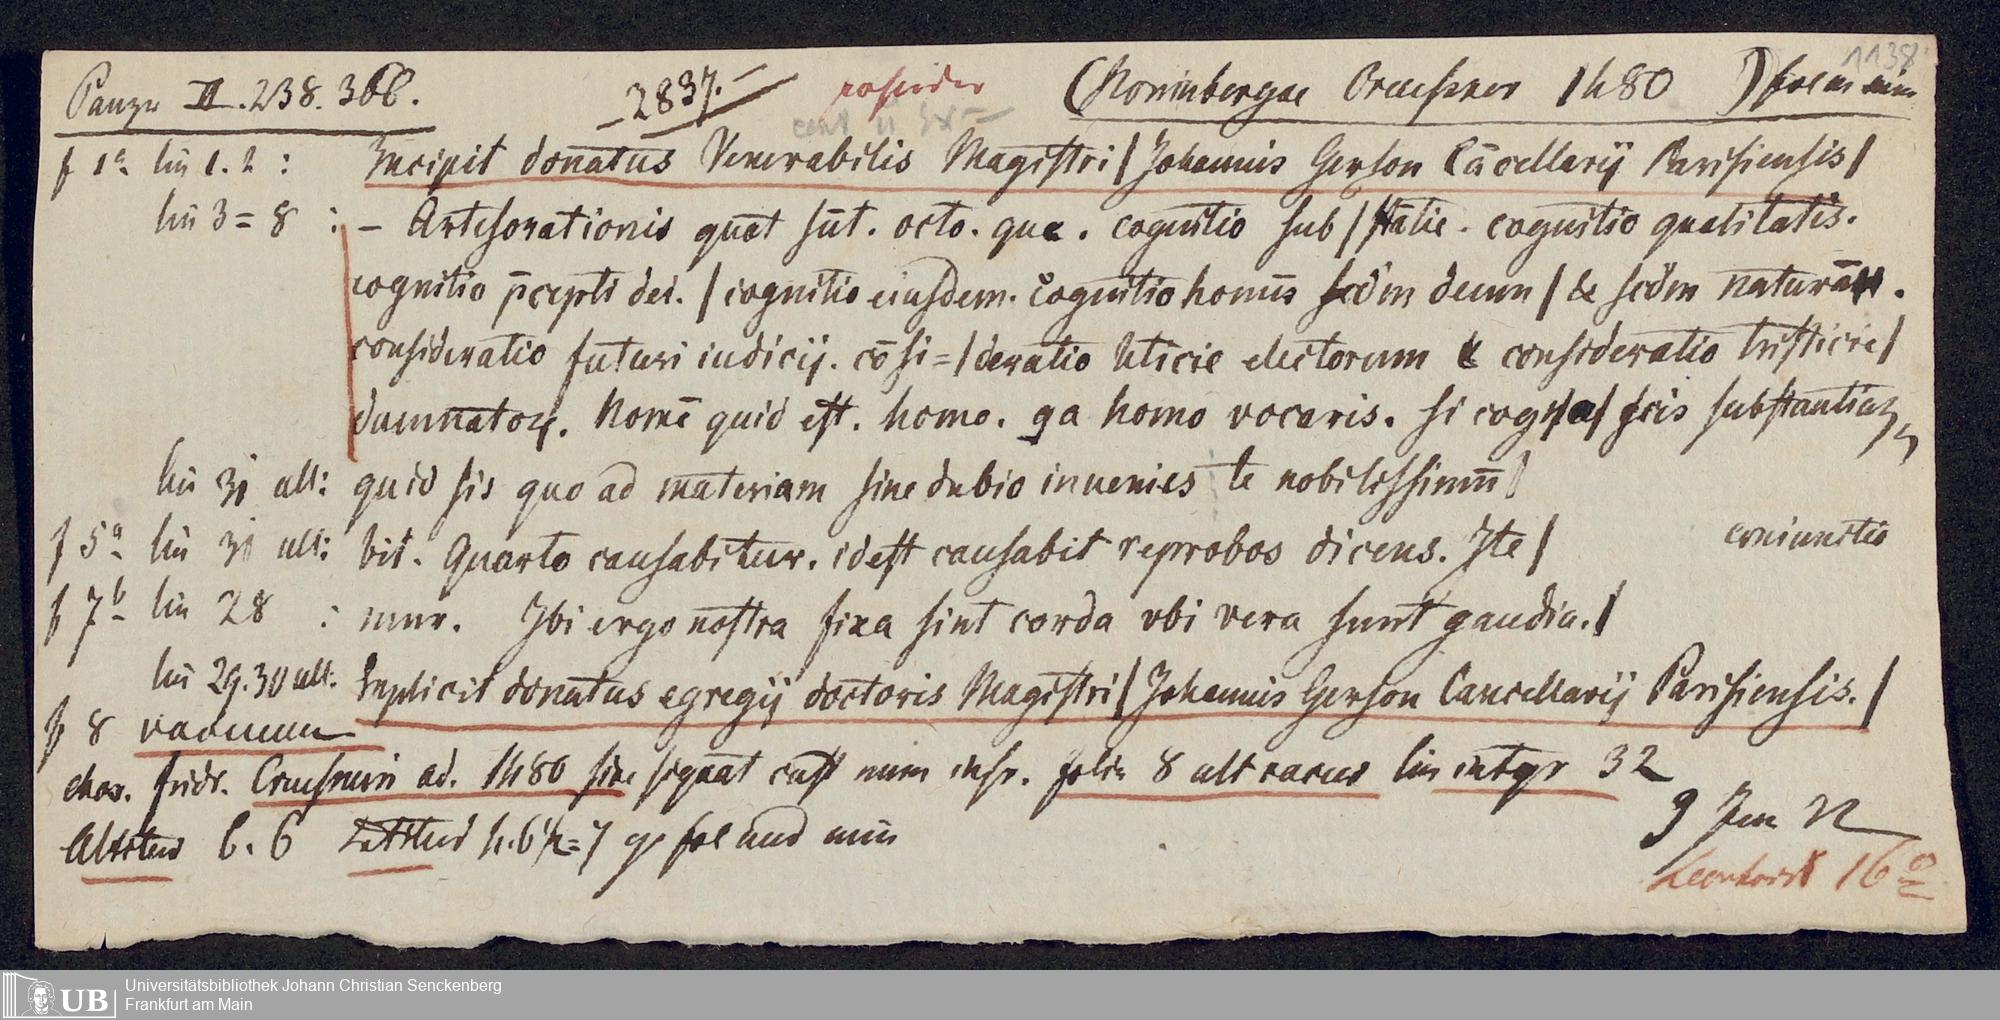 Panzer II. 238. 366.
2837.
(Norimbergae Creussner 1480) fol m min
1138
f 1a lin 1. 2 : Incipit donatus Venerabilis Magistri | Johannis Gerson Cācellarij Parisiensis |
lin 3 = 8 : – Artes orationis quot sūt. octo. que. cognitio sub | stātie. cognitio qualitatis.
cognitio p̄cepti dei. | cognitio eiusdem. Cognitio homīs scd̄m deum | & scd̄m naturā.
consideratio futuri iudicij. cōsi= | deratio leticie electorum & consideratio tristicie |
damnatoꝝ. Nomē quid est. homo. qa homo vocaris. si | scis substantiaꝫ
lin 31 ult: quid sis quo ad materiam sine dubio inuenies te nobilissimū |
f 5a lin 31 ult: bit. Quarto causabitur. idest causabit reprobos dicens. Ite | coniunctio
f 7b lin 28 : mur. Ibi ergo nostra fixa sint corda vbi vera sunt gaudia. |
lin 29. 30 ult. Explicit donatus egregij doctoris Magistri | Johannis Gerson Cancellarij Parisiensis. |
f 8 vacuum
char. Fridr. Creusneri ad. 1480 sine signat cust num folia 8 ult vacuo lin integr 32
Altitud 6. 6 Latitud fol med min
9 Jun
Leonhard 16
Universitätsbibliothek Johann Christian Senckenberg
UB Frankfurt am Main